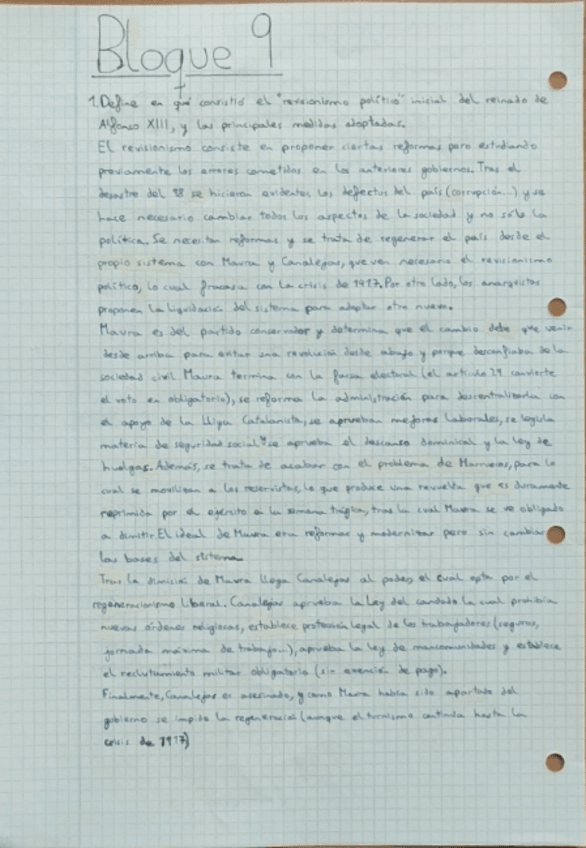 Bloque 9
1. Define en qué consistió el "revisionismo político" inicial del reinado de
Alfonso XIII, y las principales medidas adoptadas.
El revisionismo consiste en proponer ciertas reformas pero estudiando
previamente los errores cometidos en los anteriores gobiernos. Tras el
desastre del 98 se hicieron evidentes los defectos del país (corrupción...) y se
hace necesario cambiar todos los aspectos de la sociedad y no sólo la
política. Se necesitan reformas y se trata de regenerar el país desde el
propio sistema con Maura y Canalejas, que ven necesario el revisionismo
político, lo cual fracasa con la crisis de 1917. Por otro lado, los anarquistas
proponen la liquidación del sistema para adoptar otro nuevo.
Maura es del partido conservador y determina que el cambio debe que venir
desde arriba para evitar una revolución desde abajo y porque desconfiaba de la
sociedad civil. Maura termina con la farsa electoral (el artículo 29 convierte
el voto en obligatorio), se reforma la administración para descentralizarla con
el apoyo de la Lliga Catalanista, se aprueban mejoras laborales, se legisla
materia de seguridad social y se aprueba el descanso dominical y la ley de
huelgas. Además, se trata de acabar con el problema de Marruecos, para lo
cual se movilizan a los reservistas, lo que produce una revuelta que es duramente
reprimida por el ejército en la semana trágica, tras la cual Maura se ve obligado
a dimitir. El ideal de Maura era reformar y modernizar pero sin cambiar
las bases del sistema.
Tras la dimisión de Maura llega Canalejas al poder, el cual opta por el
regeneracionismo liberal. Canalejas aprueba la Ley del candado la cual prohibía
nuevas órdenes religiosas, establece protección legal de los trabajadores (seguros,
jornada máxima de trabajo...), aprueba la ley de mancomunidades y establece
el reclutamiento militar obligatorio (sin exención de pago).
Finalmente, Canalejas es asesinado, y como Maura había sido apartado del
gobierno se impide la regeneración (aunque el turnismo continúa hasta la
crisis de 1917)